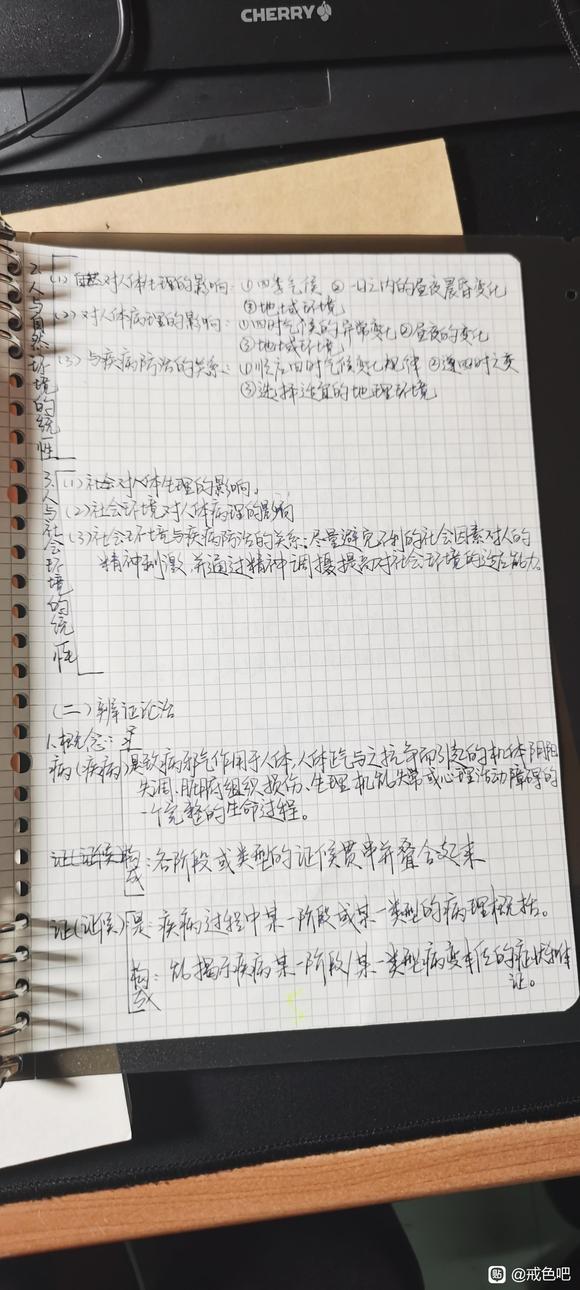 CHERRY
2.人与自然环境的统一性
(1)自然对人体生理的影响:①四季气候 ②一日之内的昼夜晨昏变化
③地域环境
(2)对人体病理的影响:①四时气候的异常变化②昼夜的变化
③地域环境
(3)与疾病防治的关系:①顺应四时气候变化规律 ②逢四时之变
③选择适宜的地理环境
3.人与社会环境的统一性
(1)社会对人体生理的影响。
(2)社会环境对人体病理的影响
(3)社会环境与疾病防治的关系:尽量避免不利的社会因素对人的
精神刺激,并通过精神调摄提高对社会环境的适应能力。
(二)辨证论治
1.概念:
病(疾病)是致病邪气作用于人体,人体正气与之抗争而引起的机体阴阳
失调、脏腑组织损伤、生理机能失常或心理活动障碍的
一个完整的生命过程。
构成:各阶段或类型的证候贯串并叠合起来
证(证候)是:疾病过程中某一阶段或某一类型的病理概括。
构成:能揭示疾病某一阶段/某一类型病变本质的症状和体
证。
贴 @戒色吧